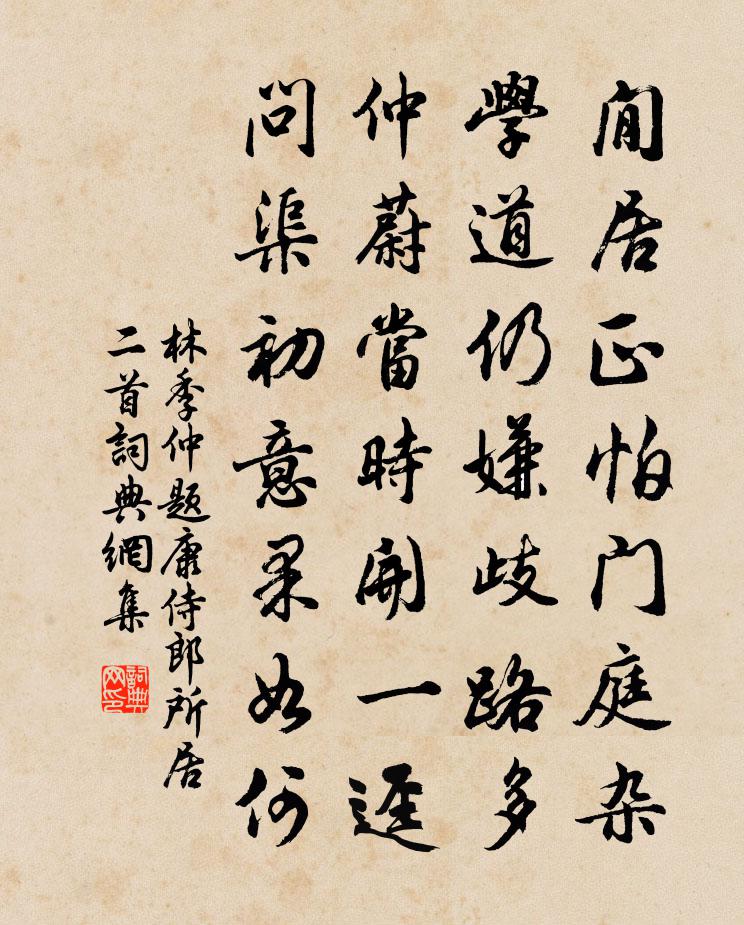 閒居正怕门庭杂
學道仍嫌歧路多
仲蔚當時開一逕
問渠初意果如何
林季仲题康侍郎所居
二首詞典網集
詞典网印